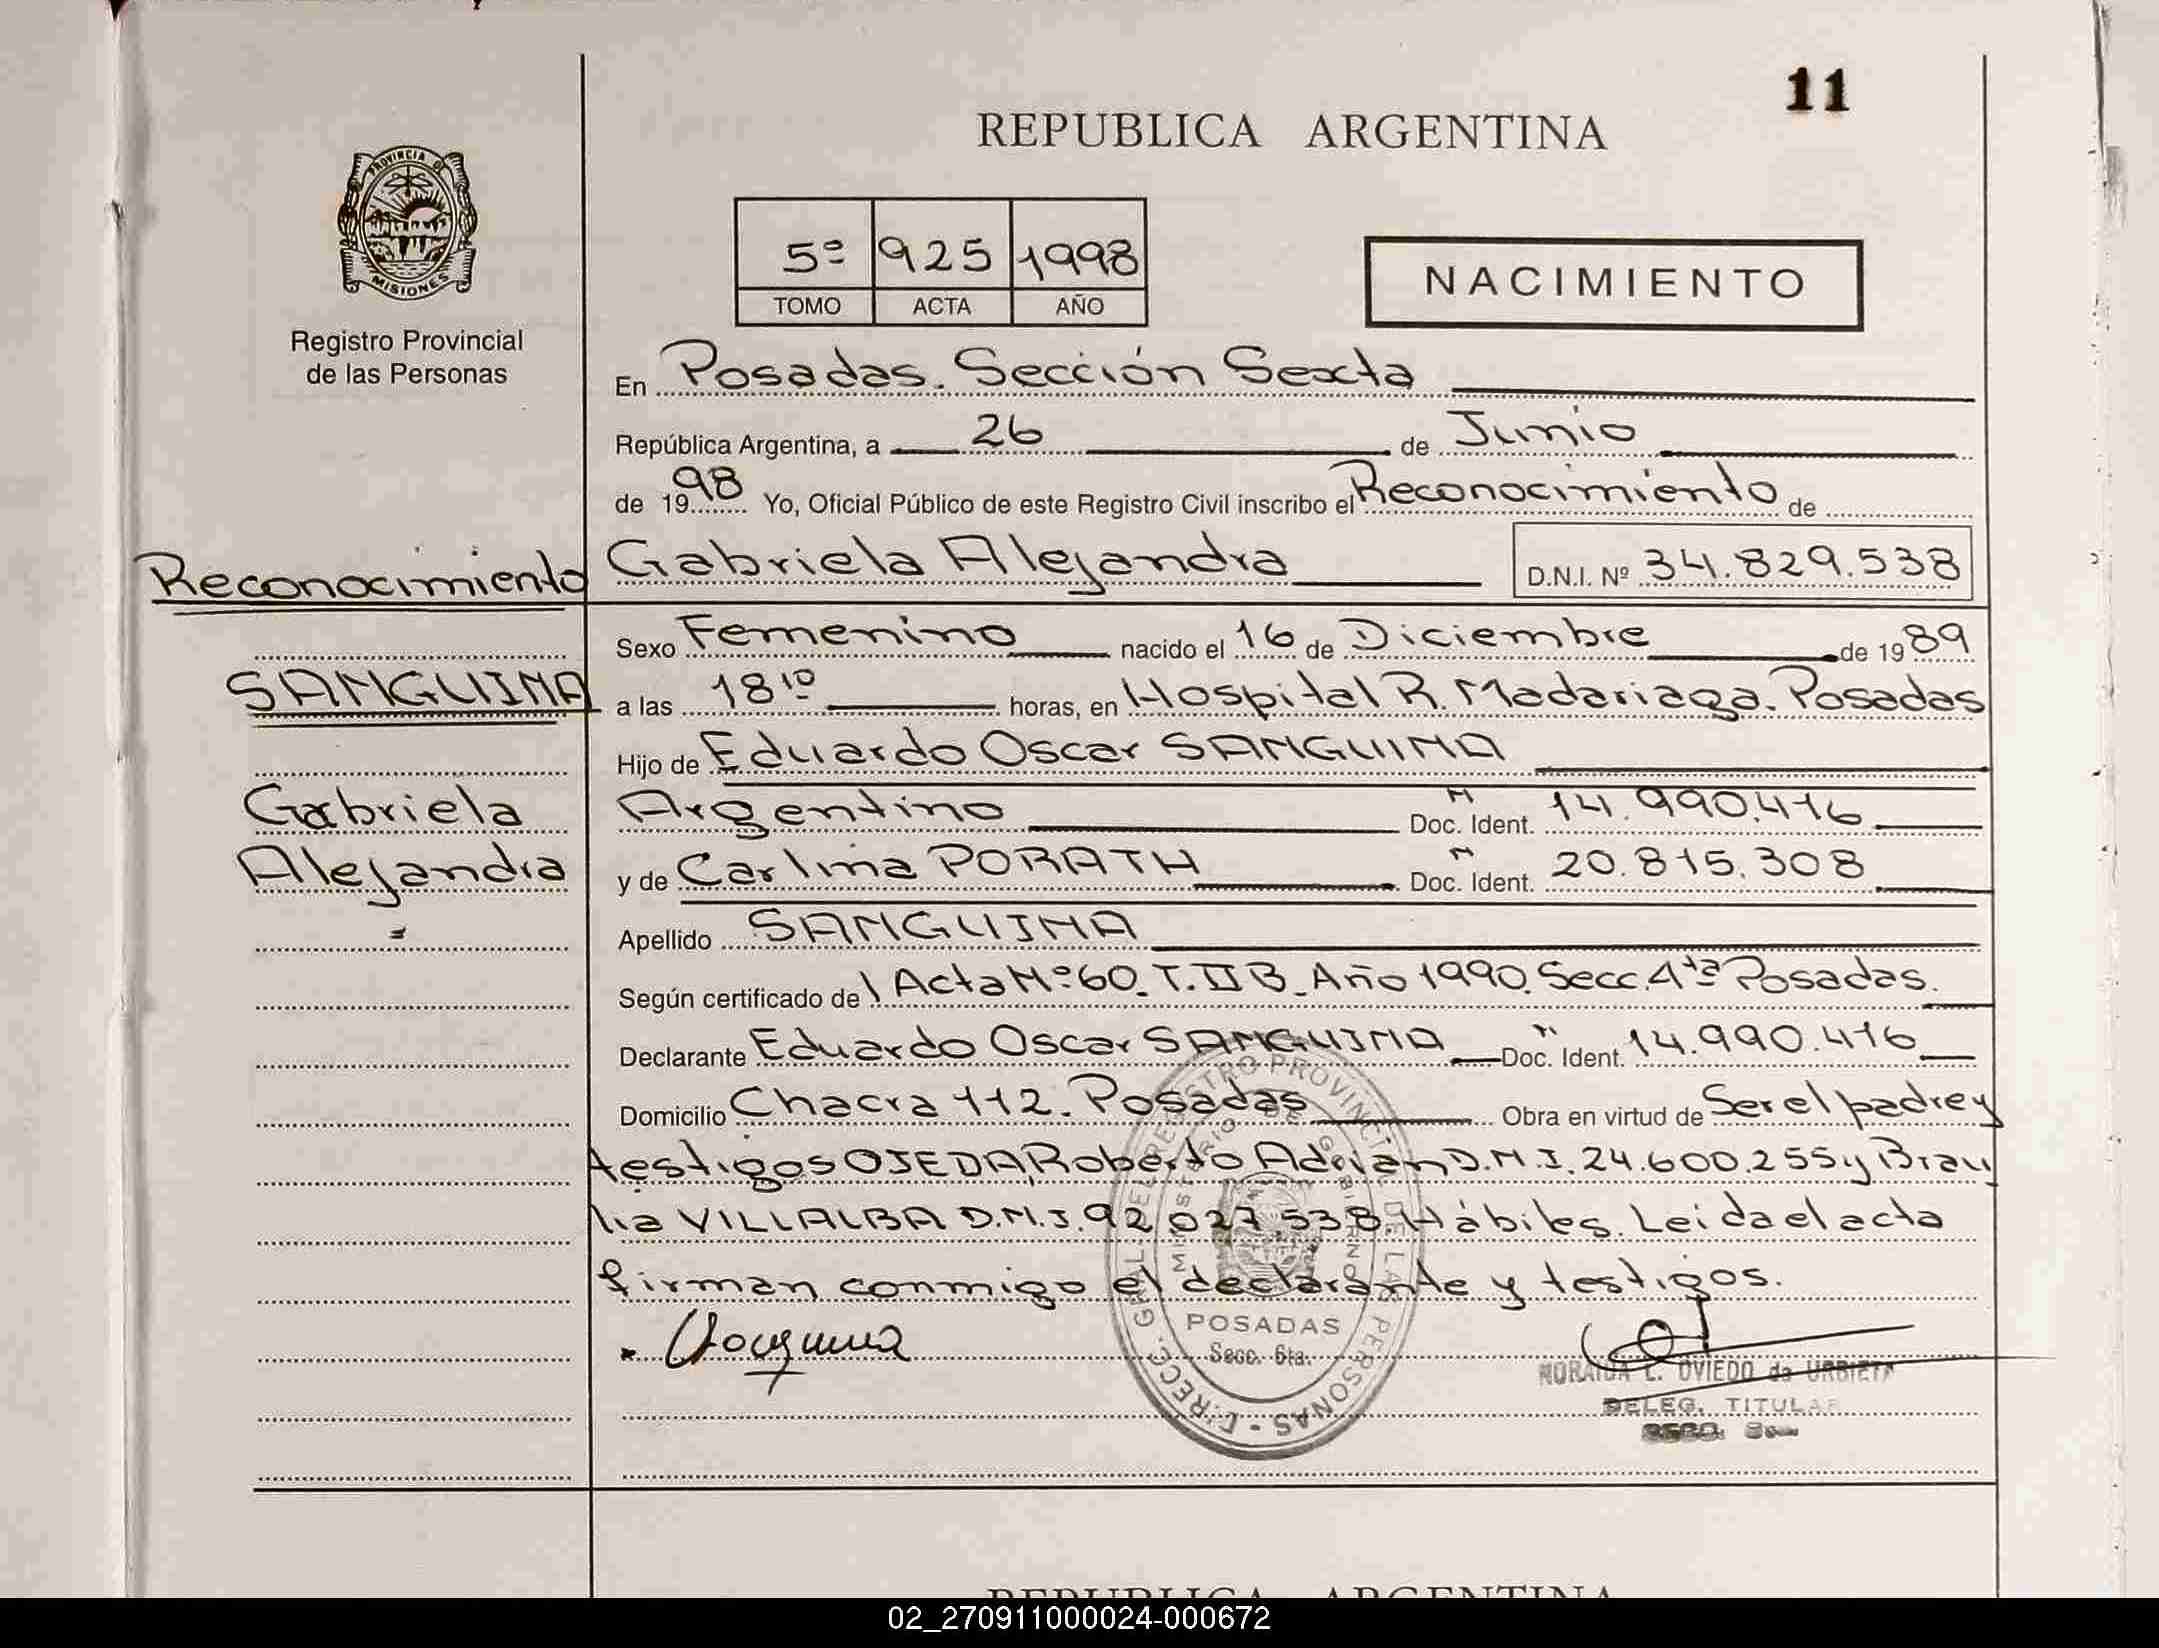 11
REPUBLICA ARGENTINA
PROVINCIA DE MISIONES
Registro Provincial
de las Personas
5º 925 1998
TOMO ACTA AÑO
NACIMIENTO
En Posadas. Sección Sexta
República Argentina, a 26 de Junio
de 1998 Yo, Oficial Público de este Registro Civil inscribo el Reconocimiento de
Reconocimiento
Gabriela Alejandra D.N.I. Nº 34.829.538
Sexo Femenino nacido el 16 de Diciembre de 1989
SANGUINA
a las 18¹⁰ horas, en Hospital R. Madariaga. Posadas
Hijo de Eduardo Oscar SANGUINA
Gabriela
Argentino Doc. Ident. 14.990.416
Alejandra
y de Carlina PORATH Doc. Ident. 20.815.308
Apellido SANGUINA
Según certificado de Acta Nº 60. T. II B. Año 1990. Secc. 4ta Posadas.
Declarante Eduardo Oscar SANGUINA Doc. Ident. 14.990.416
Domicilio Chacra 112. Posadas Obra en virtud de Ser el padre y
testigos OJEDA, Roberto Adrián D.N.I. 24.600.255 y Brau
lia VILLALBA D.N.I. 92.027.538 Hábiles. Leida el acta
firman conmigo el declarante y testigos.
DIRECC. GRAL. DEL REGISTRO PROVINCIAL DE LAS PERSONAS
MINISTERIO DE GOBIERNO
POSADAS
Secc. 6ta.
NORAIDA L. OVIEDO de URBIETA
DELEG. TITULAR
REPUBLICA ARGENTINA
02_270911000024-000672